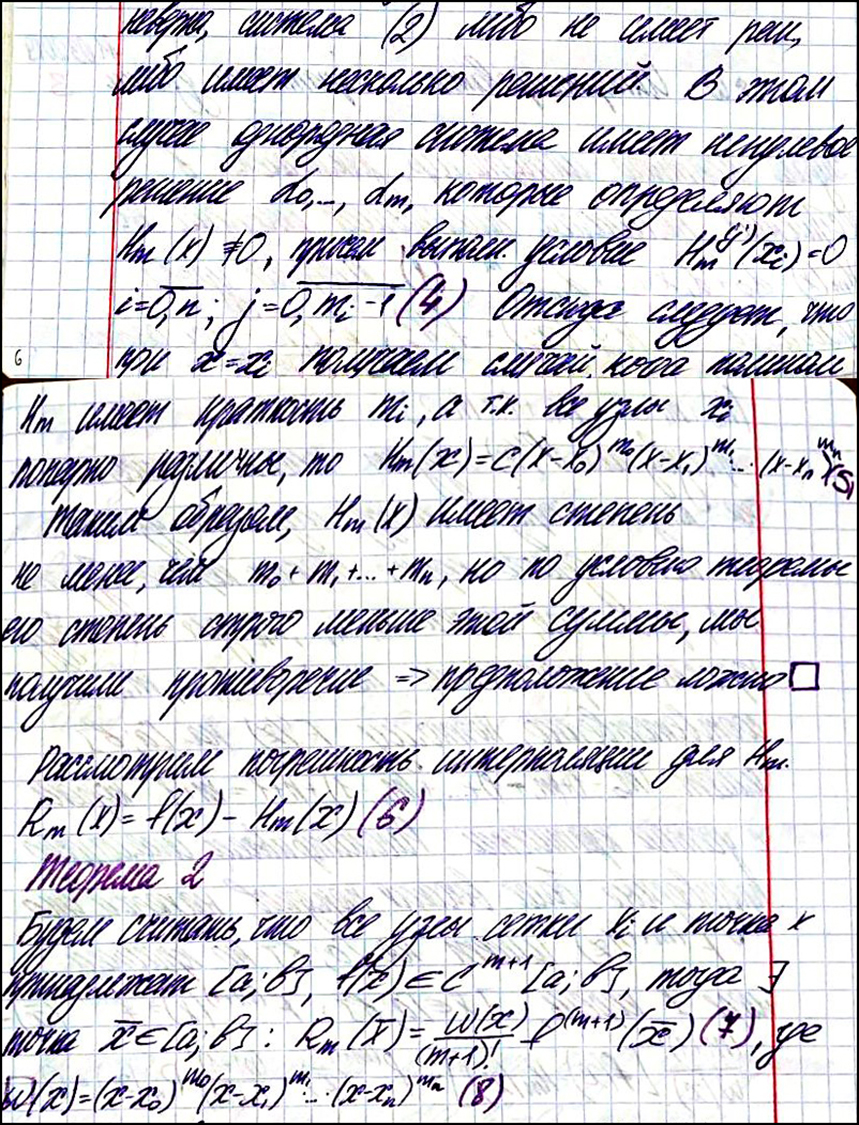 неверна, система (2) либо не имеет реш,
либо имеет несколько решений. В этом
случае однородная система имеет ненулевое
решение α₀,..., αₘ, которые определяют
Hₘ(x) ≢ 0, причем выполн. условие Hₘ⁽ʲ⁾(xᵢ)=0
i=0,n; j=0,mᵢ-1 (4) Отсюда следует, что
при x=xᵢ получаем случай, когда полином
6
Hₘ имеет кратность mᵢ, а т.к. все узлы xᵢ
попарно различны, то Hₘ(x)=C(x-x₀)^m₀(x-x₁)^m₁...(x-xₙ)^mₙ (5)
Таким образом, Hₘ(x) имеет степень
не менее, чем m₀+m₁+...+mₙ, но по условию теоремы
его степень строго меньше этой суммы, мы
получили противоречие => предположение ложно □
Рассмотрим погрешность интерполяции для Hₘ.
Rₘ(x)= f(x) - Hₘ(x) (6)
Теорема 2
Будем считать, что все узлы сетки xᵢ и точка x
принадлежат [a;b], f(x)∈C^m+1[a;b], тогда ∃
точка x̄∈[a;b]: Rₘ(x̄)= ω(x)/(m+1)! f^(m+1)(x̄) (7), где
ω(x)=(x-x₀)^m₀(x-x₁)^m₁...(x-xₙ)^mₙ (8)